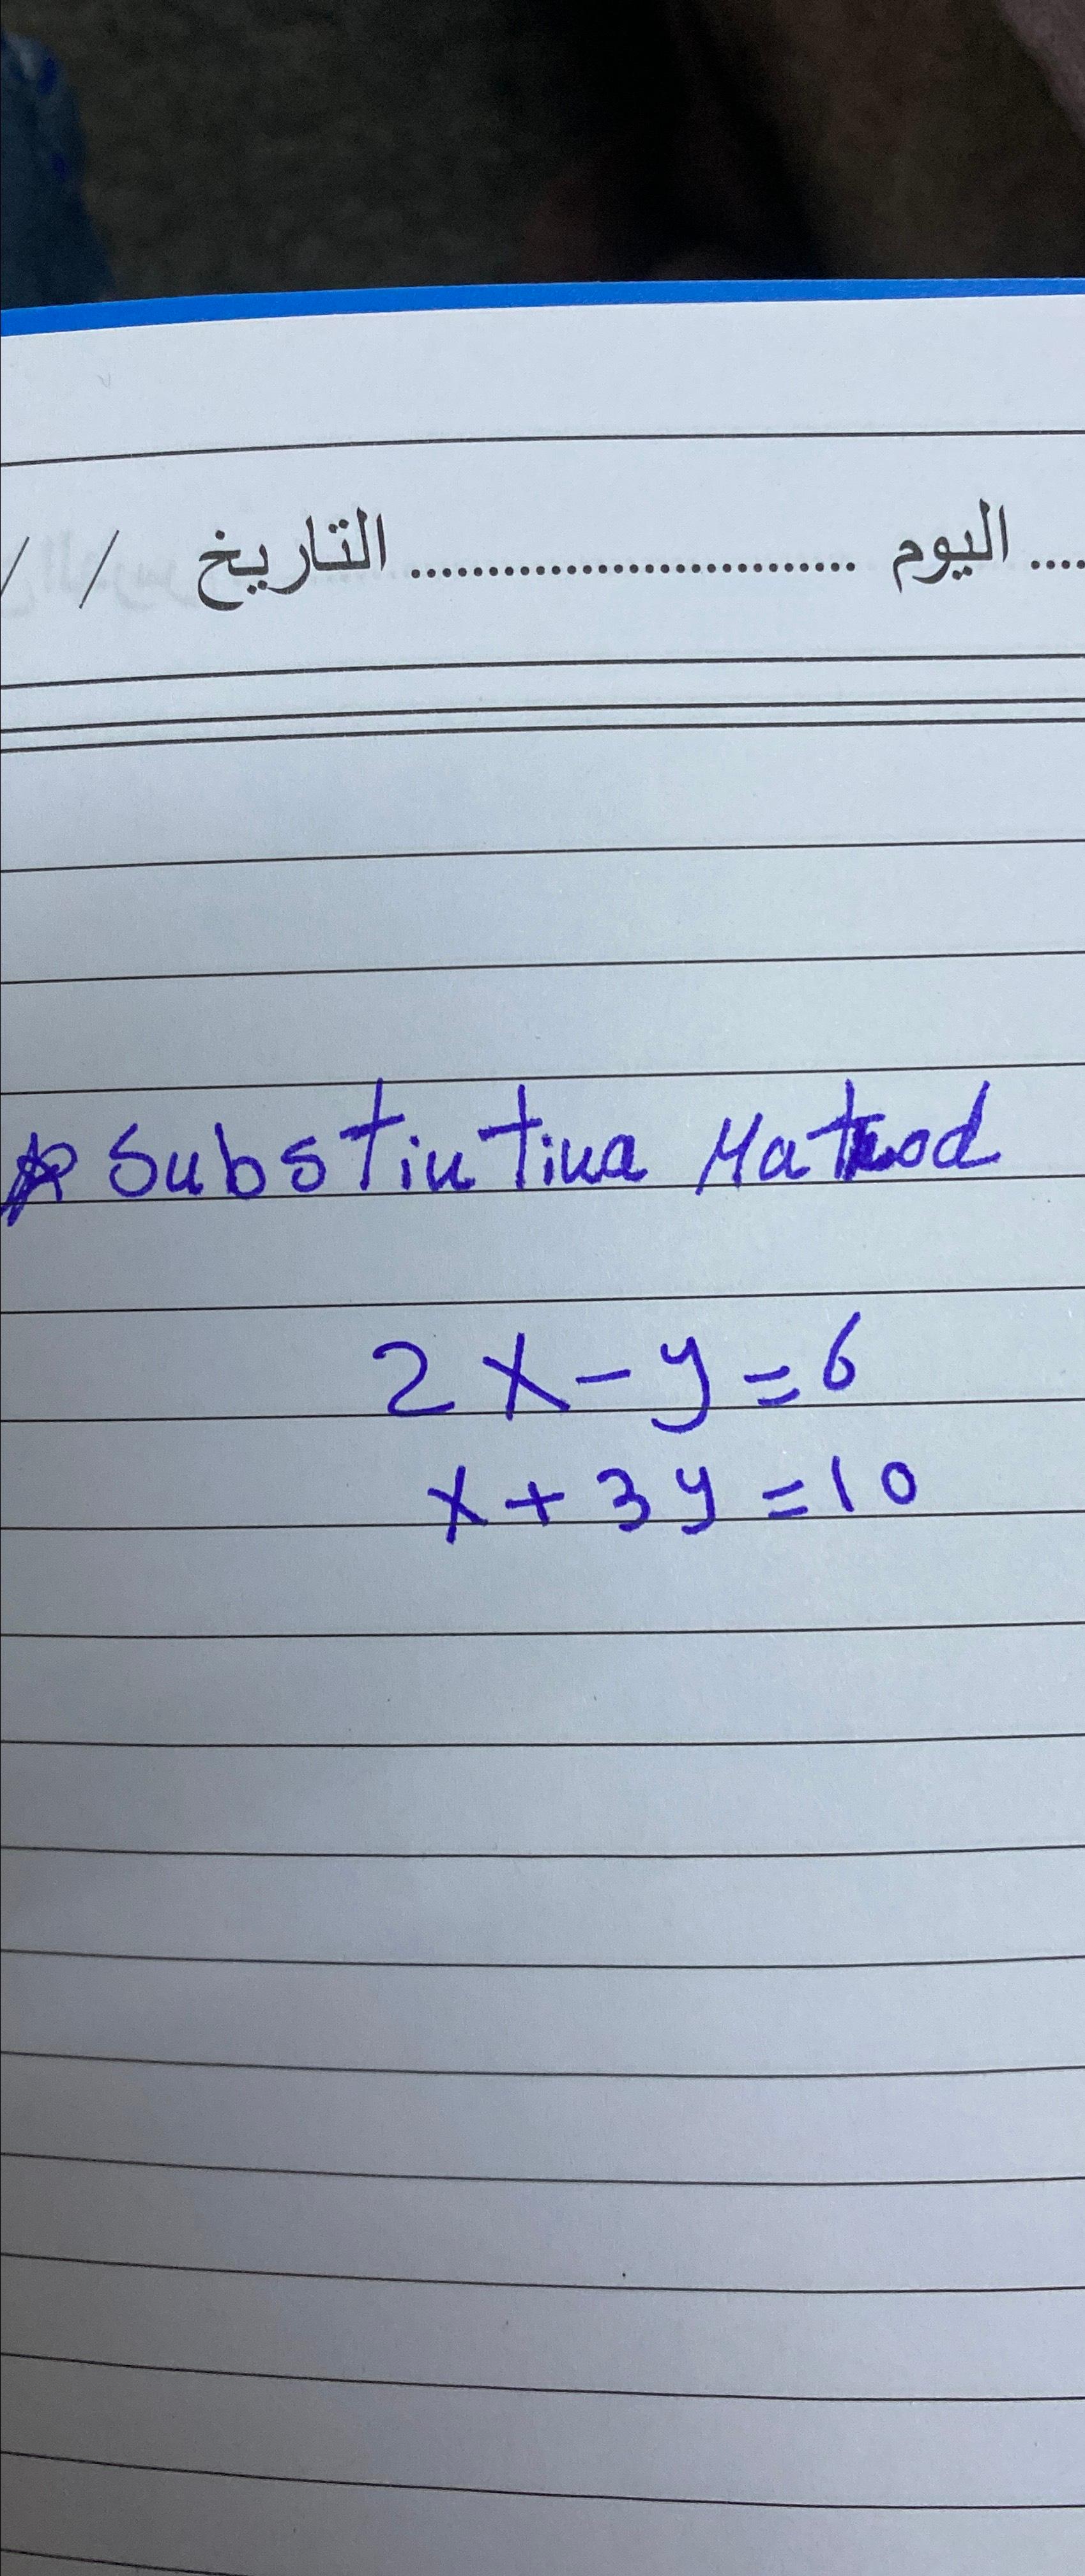 اليوم ........................ التاريخ / /
Substiutiua Mathod
2x - y = 6
x + 3y = 10